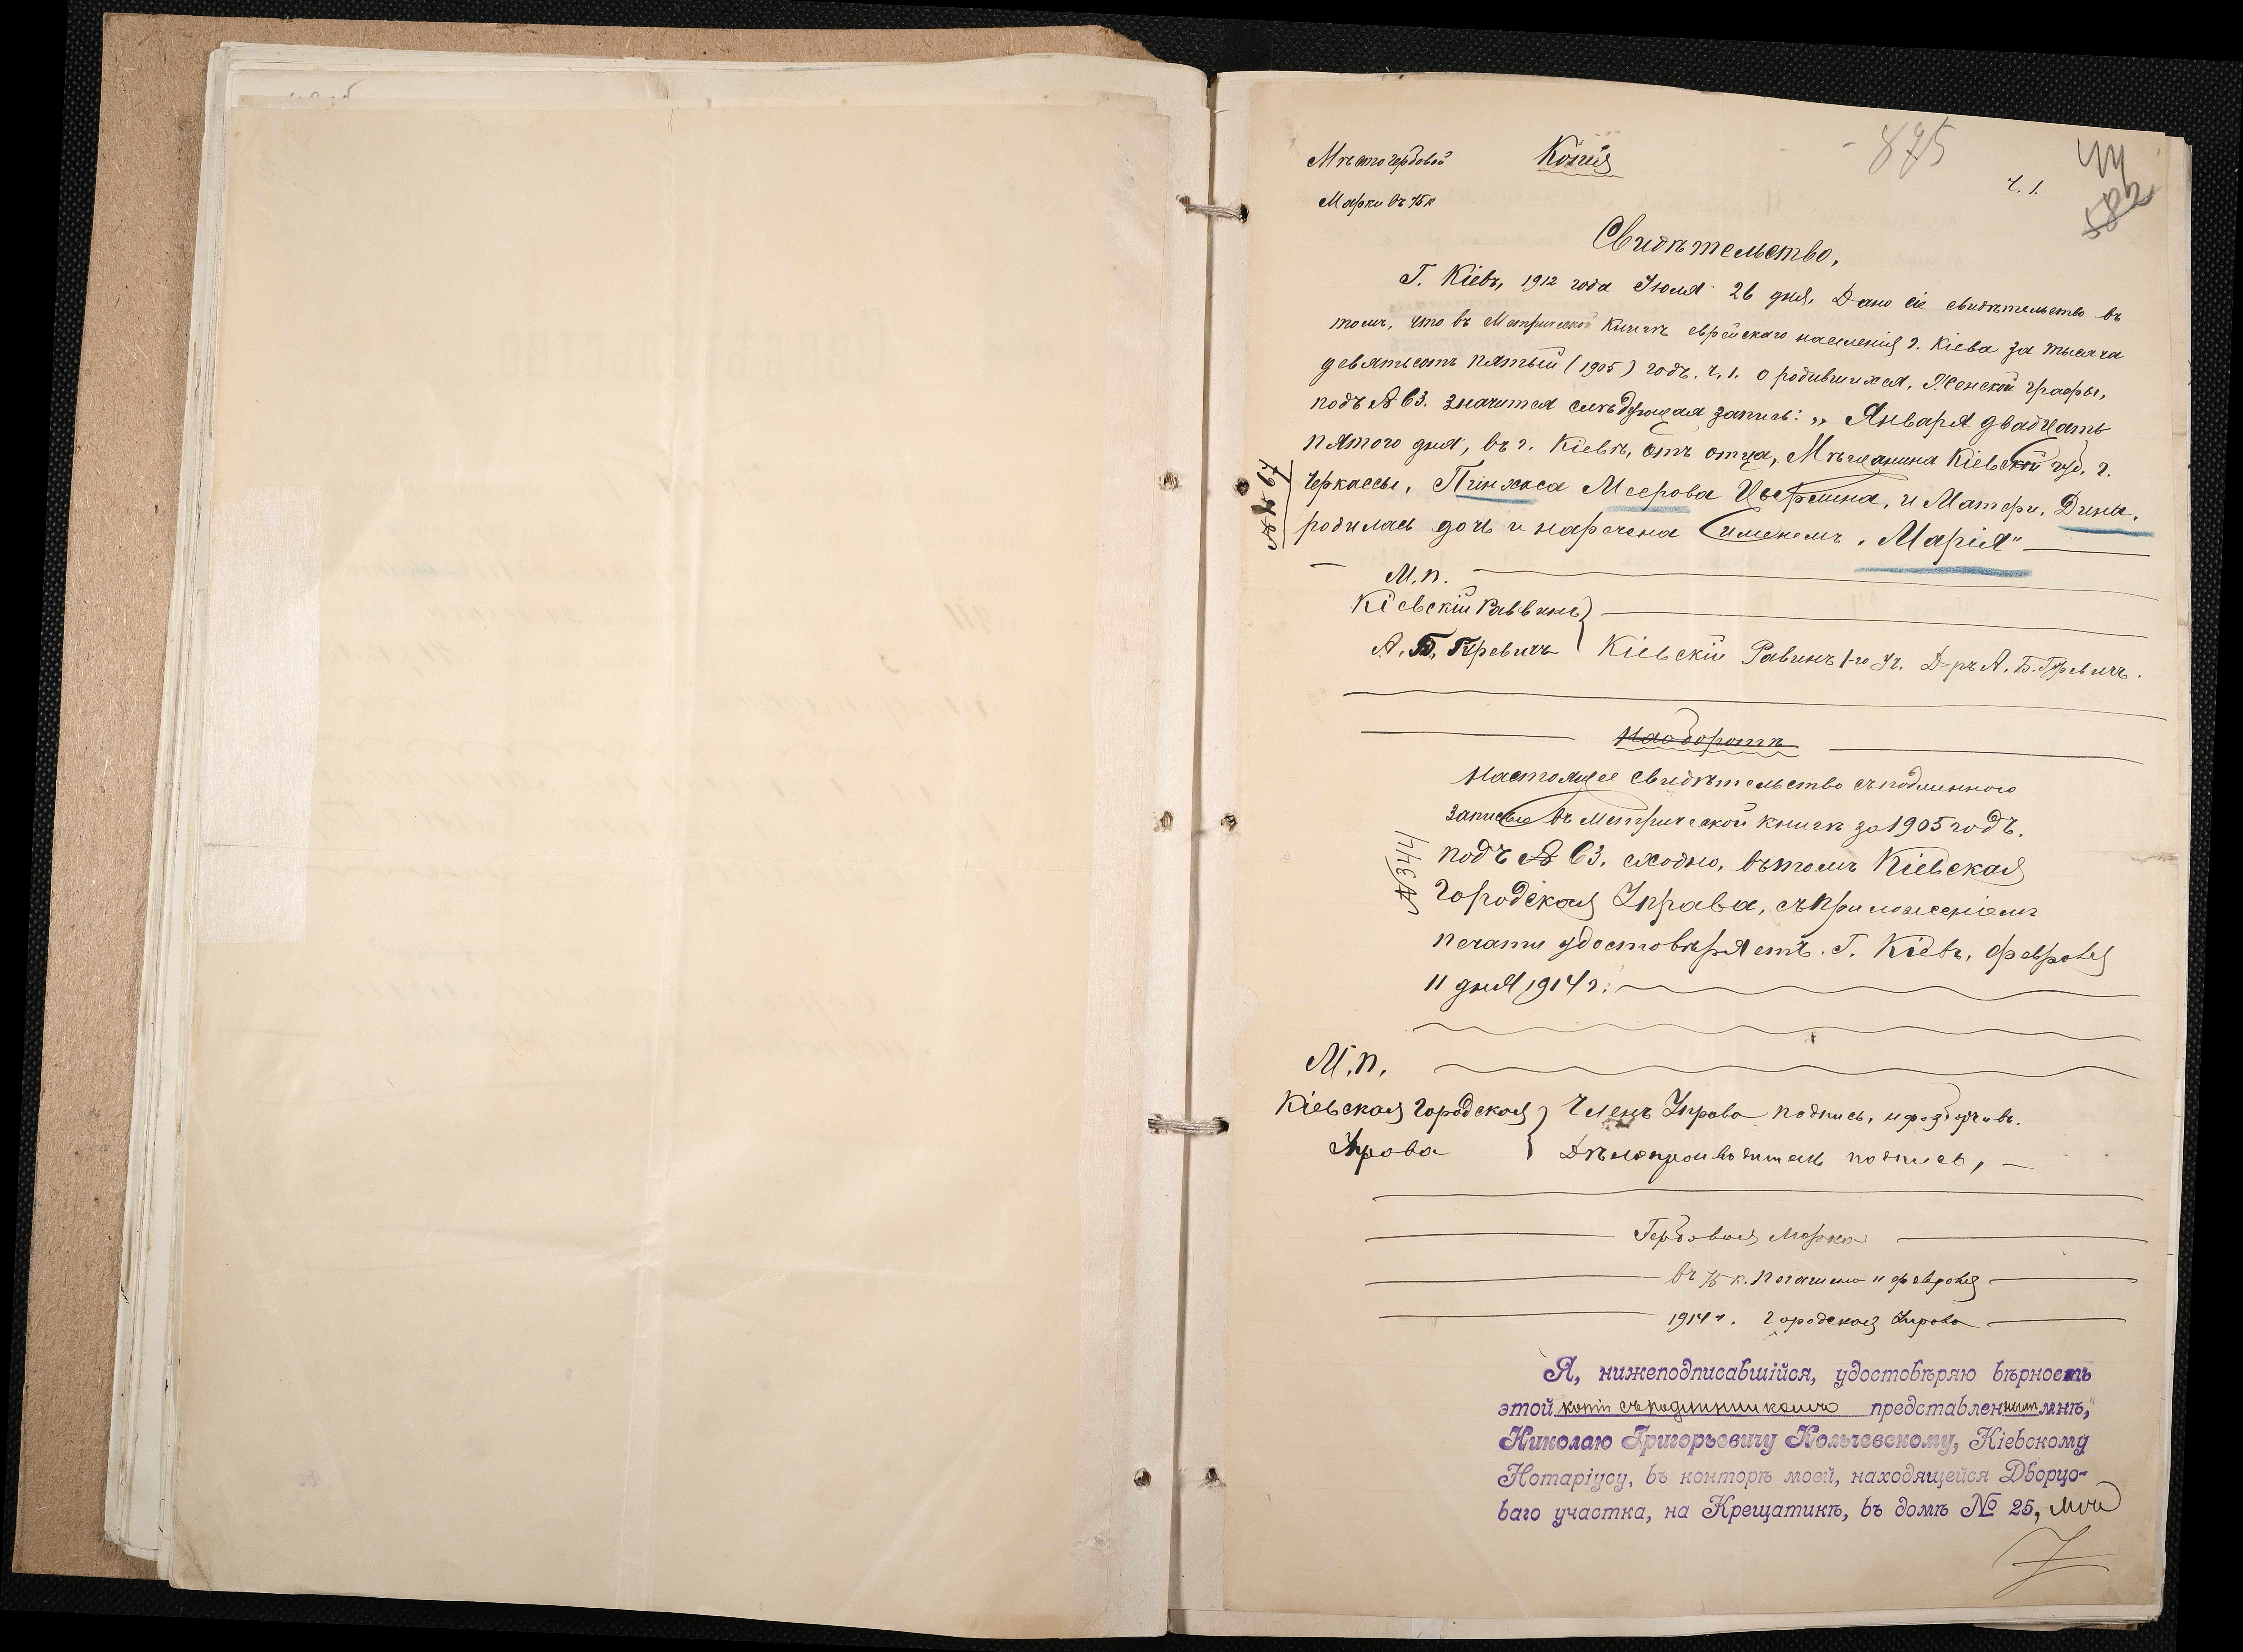 Мѣсто гербовой Копія
875
44
Марки въ 75 к
Ч. 1.
582
Свидѣтельство,
Г. Кіевъ, 1912 года Іюля 26 дня, Дано сіе свидѣтельство въ
томъ, что въ Метрической Книгѣ еврейскаго населенія г. Кіева за тысяча
девятьсотъ пятый (1905) годъ, ч. 1. о родившихся, Женской графы,
подъ № 63. значится слѣдующая запись: „ Января двадцать
пятого дня, въ г. Кіевѣ, отъ отца, Мѣщанина Кіевской губ. г.
Черкассы, Пинхаса Меерова Цыфрина, и Матери, Дины,
родилась дочь и наречена именемъ „ Марія"
М. п.
Кіевскій Раввинъ
А. Б. Гуревичъ Кіевскій Равинъ 1-го Уч. Д-ръ А. Б. Гуревичъ.
На оборотѣ
Настоящее свидѣтельство съ подлинного
записью въ метрической книгѣ за 1905 годъ,
подъ № 63. сходно, въ томъ Кіевская
№ 3441
Городская Управа, съ приложеніемъ
печати удостовѣряетъ. Г. Кіевъ, февраля
11 дня 1914 г.
М. п.
Кіевская Городская Членъ Управа подпись, неразборчивъ.
Управа Дѣлопроизводитель подпись,
Гербовая Марка
въ 75 к. погашена 11 февраля
1914 г. Городская Управа
Я, нижеподписавшійся, удостовѣряю вѣрность
этой копіи съ подлинникомъ представленнымъ мнѣ,
Николаю Григорьевичу Кольчевскому, Кіевскому
Нотаріусу, въ конторѣ моей, находящейся Дворцо-
ваго участка, на Крещатикѣ, въ домѣ № 25,